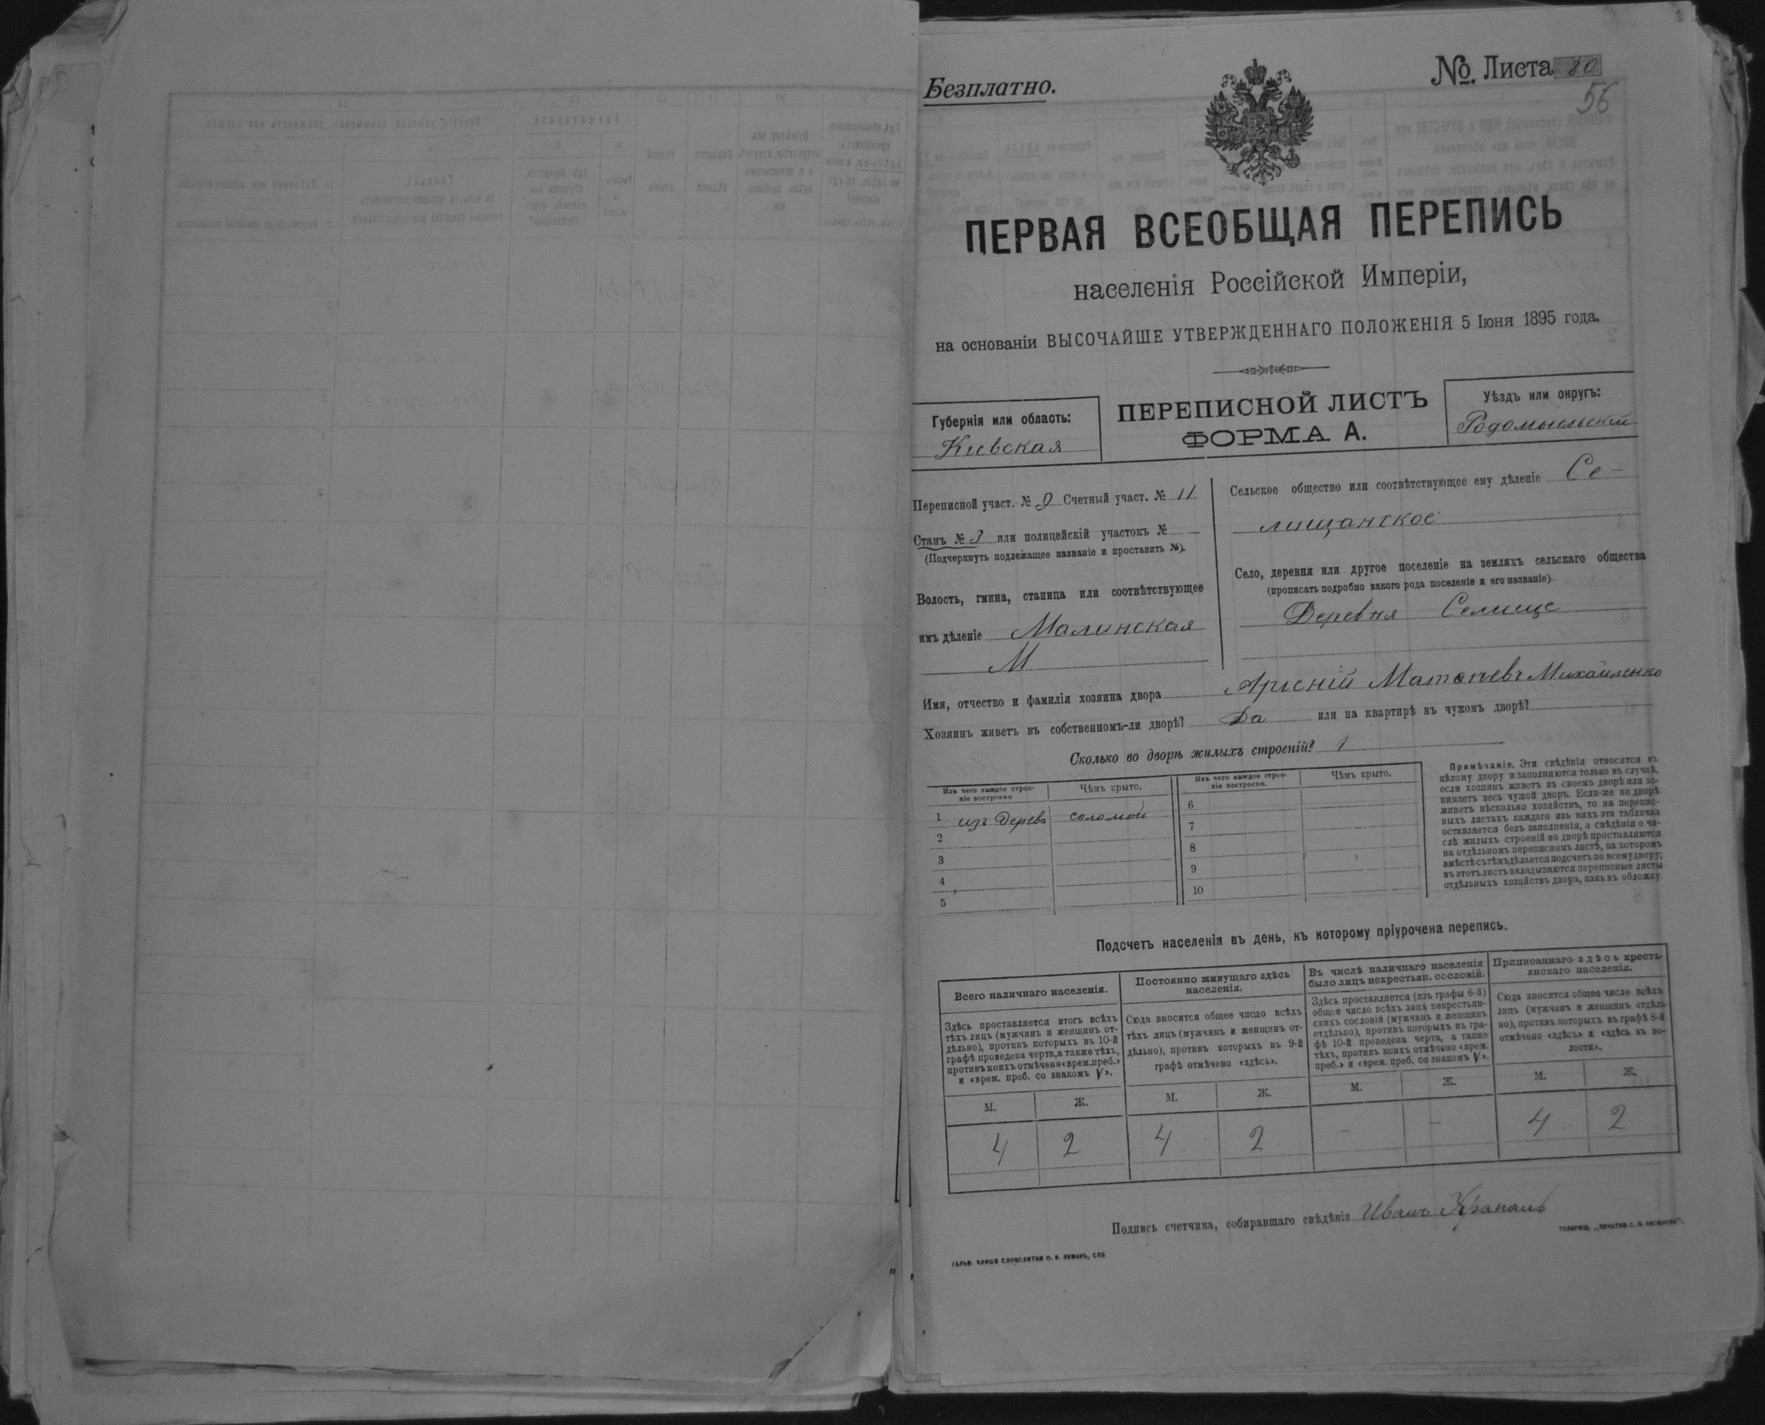 Безплатно.
№ Листа 80
56
ПЕРВАЯ ВСЕОБЩАЯ ПЕРЕПИСЬ
населенія Россійской Имперіи,
на основаніи ВЫСОЧАЙШЕ УТВЕРЖДЕННАГО ПОЛОЖЕНІЯ 5 Іюня 1895 года.
Губернія или область:
Киевская
ПЕРЕПИСНОЙ ЛИСТЪ
ФОРМА А.
Уѣздъ или округъ:
Родомысльскій
Переписной участ. № 9 Счетный участ. № 11
Станъ № 3 или полицейскій участокъ № —
(Подчеркнуть подлежащее названіе и проставить №).
Волость, гмина, станица или соотвѣтствующее
имъ дѣленіе Малинская
М
Сельское общество или соотвѣтствующее ему дѣленіе Се-
лищанское
Село, деревня или другое поселеніе на земляхъ сельскаго общества
(прописать подробно какого рода поселеніе и его названіе).
Деревня Селище
Имя, отчество и фамилія хозяина двора Арсеній Матвіевъ Михайленко
Хозяинъ живетъ въ собственномъ-ли дворѣ? Да или на квартирѣ въ чужомъ дворѣ?
Сколько во дворѣ жилыхъ строеній? 1
Изъ чего каждое строе-
ніе построено
Чѣмъ крыто.
1 изъ дерева соломой
2
3
4
5
Изъ чего каждое строе-
ніе построено.
Чѣмъ крыто.
6
7
8
9
10
Примѣчаніе. Эти свѣдѣнія относятся къ
цѣлому двору и заполняются только въ случаѣ,
если хозяинъ живетъ въ своемъ дворѣ или за-
нимаетъ весь чужой дворъ. Если-же во дворѣ
живетъ нѣсколько хозяйствъ, то на перепис-
ныхъ листахъ каждаго изъ нихъ эта табличка
оставляется безъ заполненія, а свѣдѣнія о чи-
слѣ жилыхъ строеній во дворѣ проставляются
на отдѣльномъ переписномъ листѣ, на которомъ
вмѣстѣ съ тѣмъ дѣлается подсчетъ по всему двору;
въ этотъ листъ вкладываются переписные листы
отдѣльныхъ хозяйствъ двора, какъ въ обложку.
Подсчетъ населенія въ день, къ которому пріурочена перепись.
Всего наличнаго населенія.
Здѣсь проставляется итогъ всѣхъ
тѣхъ лицъ (мужчинъ и женщинъ от-
дѣльно), противъ которыхъ въ 10-й
графѣ проведена черта, а также тѣхъ,
противъ коихъ отмѣчено «врем. преб.»
и «врем. преб. со знакомъ V».
М. Ж.
4 2
Постоянно живущаго здѣсь
населенія.
Сюда вносится общее число всѣхъ
тѣхъ лицъ (мужчинъ и женщинъ от-
дѣльно), противъ которыхъ въ 9-й
графѣ отмѣчено «здѣсь».
М. Ж.
4 2
Въ числѣ наличнаго населенія
было лицъ некрестьян. сословій.
Здѣсь проставляется (изъ графы 6-й)
общее число всѣхъ лицъ некрестьян-
скихъ сословій (мужчинъ и женщинъ
отдѣльно), противъ которыхъ въ гра-
фѣ 10-й проведена черта, а также
тѣхъ, противъ коихъ отмѣчено «врем.
преб.» и «врем. преб. со знакомъ V».
М. Ж.
- -
Приписаннаго здѣсь кресть-
янскаго населенія.
Сюда вносится общее число всѣхъ
лицъ (мужчинъ и женщинъ отдѣль-
но), противъ которыхъ въ графѣ 8-й
отмѣчено «здѣсь» и «здѣсь въ во-
лости».
М. Ж.
4 2
Подпись счетчика, собиравшаго свѣдѣнія Иванъ
ГАЛЬВ. КЛИШЕ СЛОВОЛИТНИ О. И. ЛЕМАНЪ, СПБ
ТОВАРИЩ. „ПЕЧАТНЯ С. П. ЯКОВЛЕВА“.